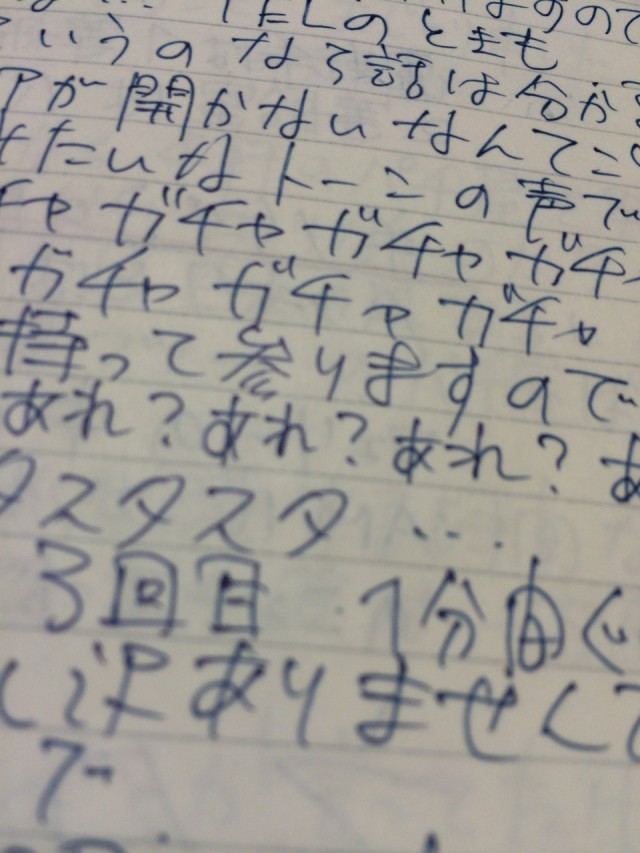 なしのときも
いうのなら話は分かる
アが開かないなんてこ
たいなトーンの声で
チャガチャガチャガチ
ガチャガチャガチャ
待って参りますので
あれ？あれ？あれ？あ
タスタスタ…
3回目 1分由ぐ
い訳ありませくて
で